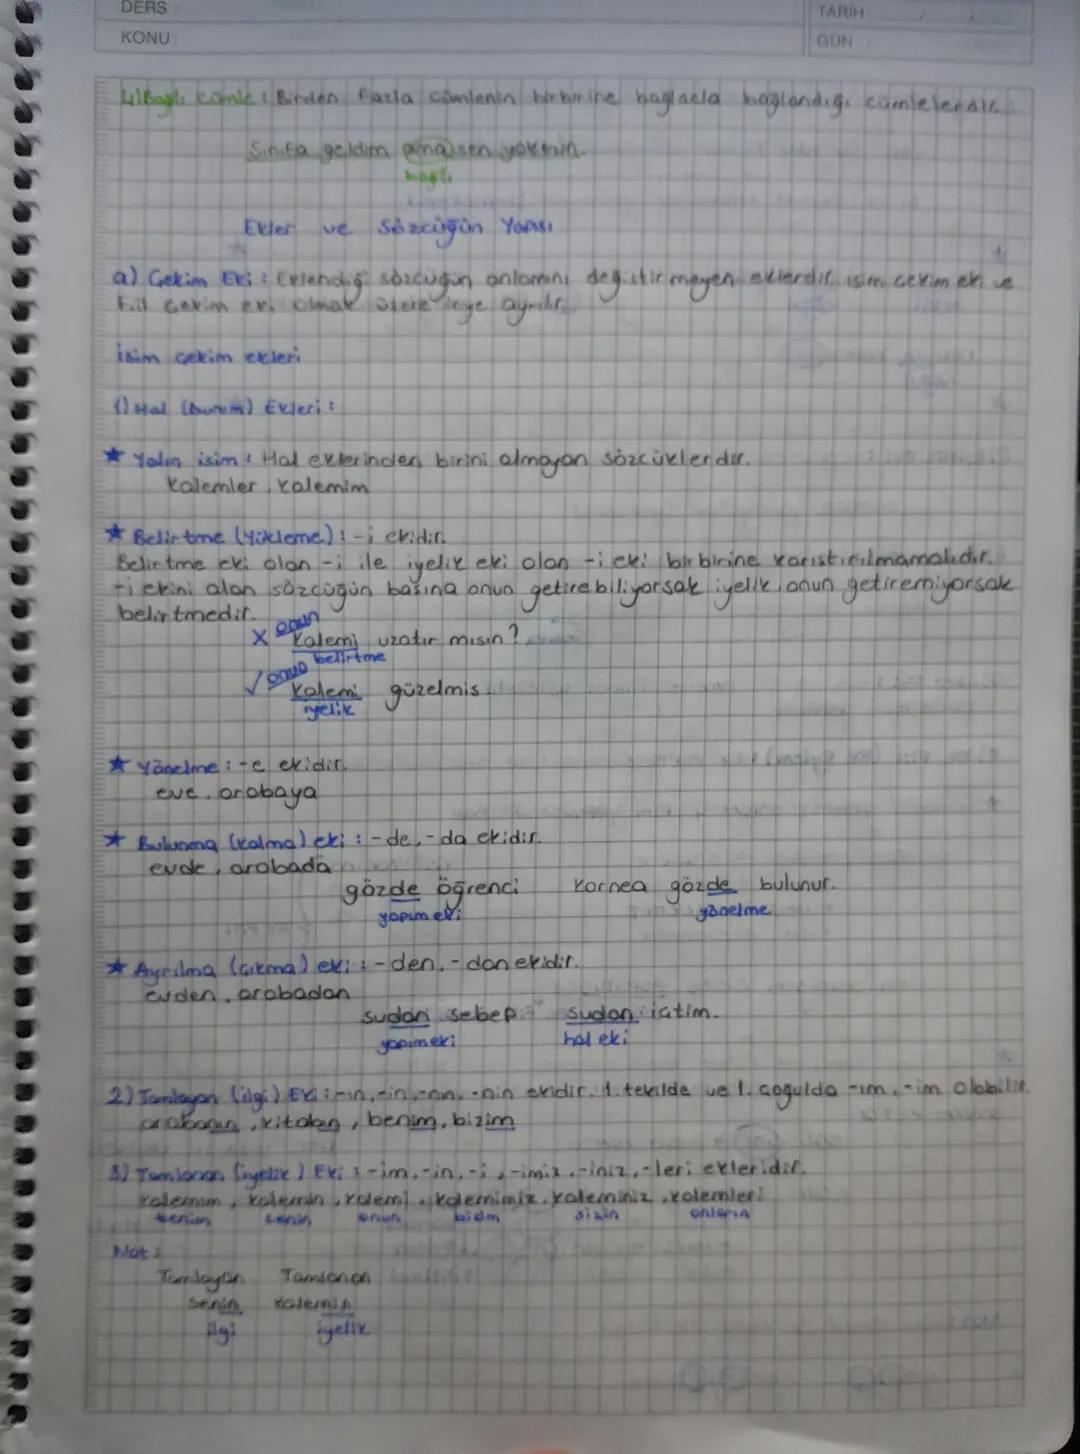 DERS
TARİH
KONU:
GÜN
4) Bağlı cümle: Birden fazla cümlenin birbirine bağlaçla bağlandığı cümlelerdir.
Sınıfa geldim ama sen yoktun.
bağl.
Ekler ve Sözcüğün Yapısı
a) Çekim Eki: Eklendiği sözcüğün anlamını değiştirmeyen eklerdir. isim çekim eki ve
fiil çekim eki olmak üzere ikiye ayrılır.
İsim çekim ekleri
1) Hal (Durum) Ekleri:
★ Yalın isim: Hal eklerinden birini almayan sözcüklerdir.
Kalemler, kalemim
★ Belirtme (Yükleme): -i ekidir.
Belirtme eki olan -i ile iyelik eki olan -i eki birbirine karıştırılmamalıdır.
-i ekini alan sözcüğün başına onun getirebiliyorsak iyelik, onun getiremiyorsak
belirtmedir.
X onun Kalemi uzatır mısın?
belirtme
✓ onun Kalemi güzelmiş.
iyelik
★ Yönelme: -e ekidir.
eve, arabaya
★ Bulunma (kalma) eki: -de, -da ekidir.
evde, arabada
gözde öğrenci kornea gözde bulunur.
yapım eki yönelme
★ Ayrılma (çıkma) eki: -den, -dan ekidir.
evden, arabadan
sudan sebep sudan içtim.
yapım eki hal eki
2) Tamlayan (ilgi) Eki: -ın, -in, -nın, -nin ekidir. 1. tekilde ve 1. çoğulda -ım, -im olabilir.
arabanın, kitabın, benim, bizim
3) Tamlanan (iyelik) Eki: -im, -in, -i, -imiz, -iniz, -leri ekleridir.
Kalemim, kalemin, kalemi, kalemimiz, kaleminiz, kalemleri
benim senin onun bizim sizin onların
Not:
Tamlayan Tamlanan
senin kalemin
ilgi iyelik